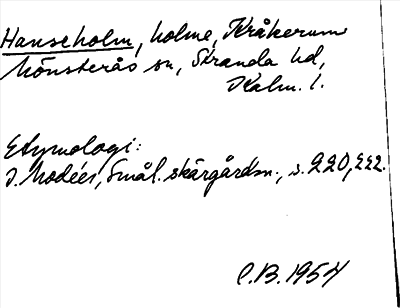 Hanseholm, holme, Kråkerum
Mönsterås sn, Stranda hd,
Kalm. l.
Etymologi:
I. Modéer, Smål. skärgårdsn., s. 220, 222.
C.B. 1954